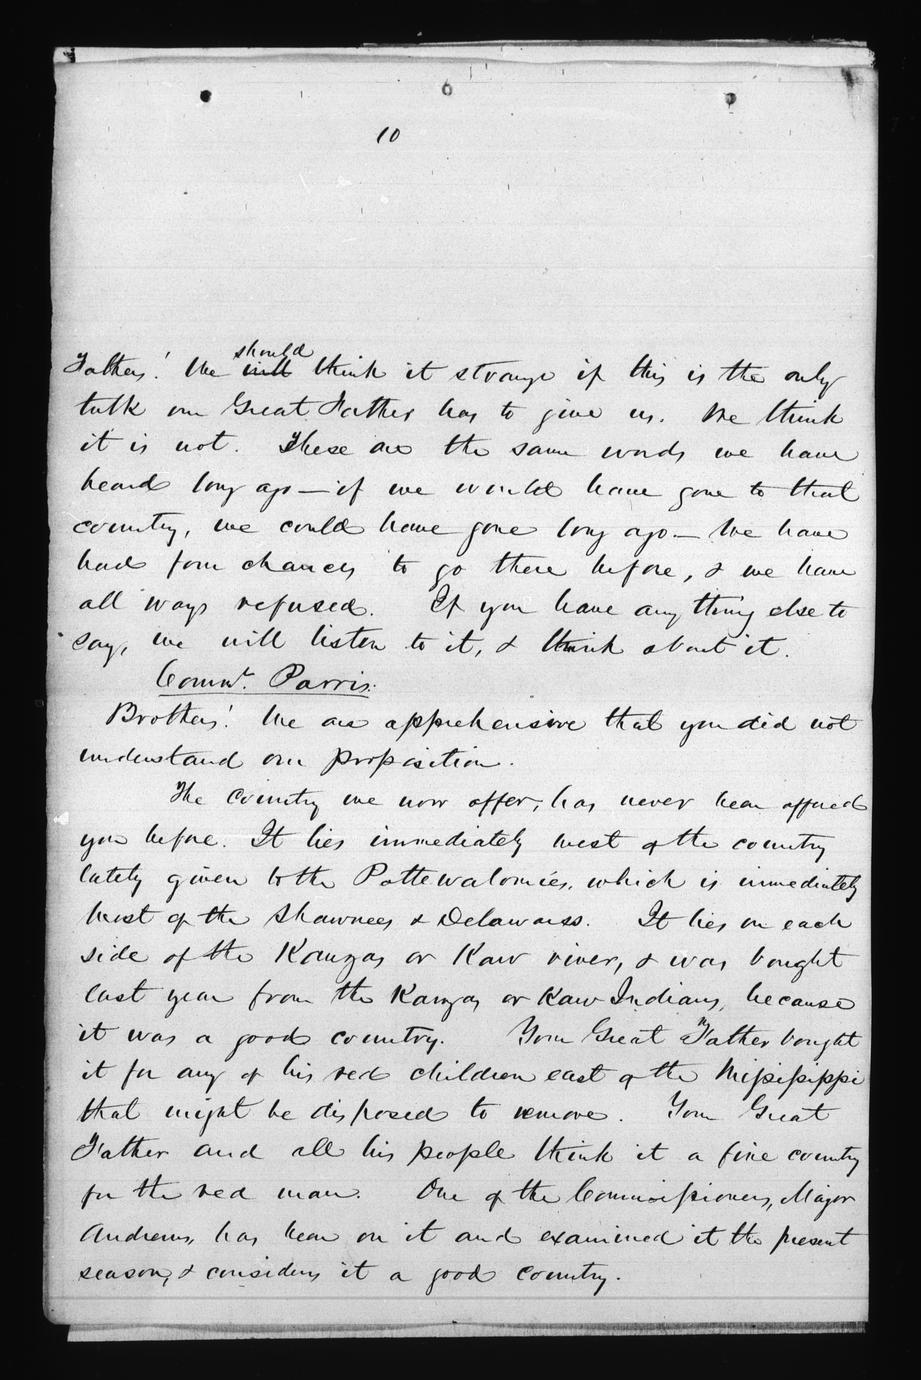 10
should
Fathers! We will think it strange if this is the only
talk our Great Father has to give us. We think
it is not. These are the same words we have
heard long ago—if we would have gone to that
country, we could have gone long ago—We have
had four chances to go there before, & we have
all ways refused. If you have any thing else to
say, we will listen to it, & think about it.
Commr. Parris.
Brothers! We are apprehensive that you did not
understand our proposition.
The country we now offer, has never been offered
you before. It lies immediately west of the country
lately given to the Pottewatomies, which is immediately
West of the Shawnees & Delawares. It lies on each
side of the Kanzas or Kaw river, & was bought
last year from the Kanzas or Kaw Indians, because
it was a good country. Your Great Father bought
it for any of his red children east of the Missisippi
that might be disposed to remove. Your Great
Father and all his people think it a fine country
for the red man. One of the Commissioners, Major
Andrews, has been on it and examined it the present
season, & considers it a good country.